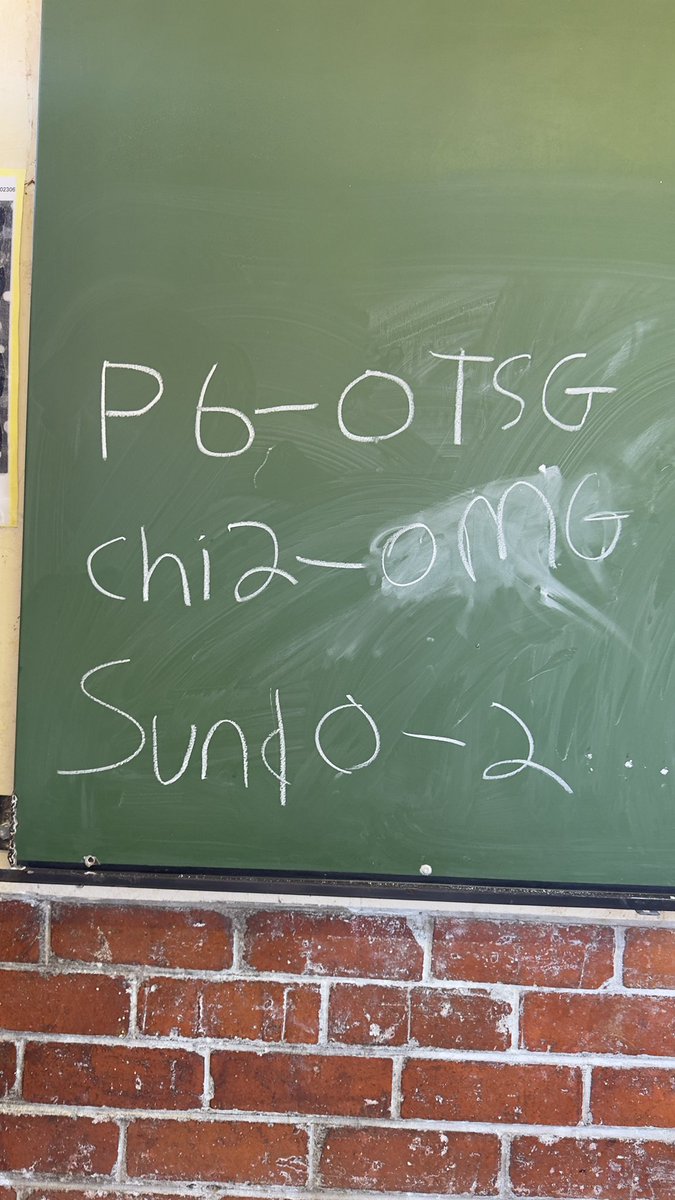 02306
P6-OTSG
chi2-OMG
Sundo-2...